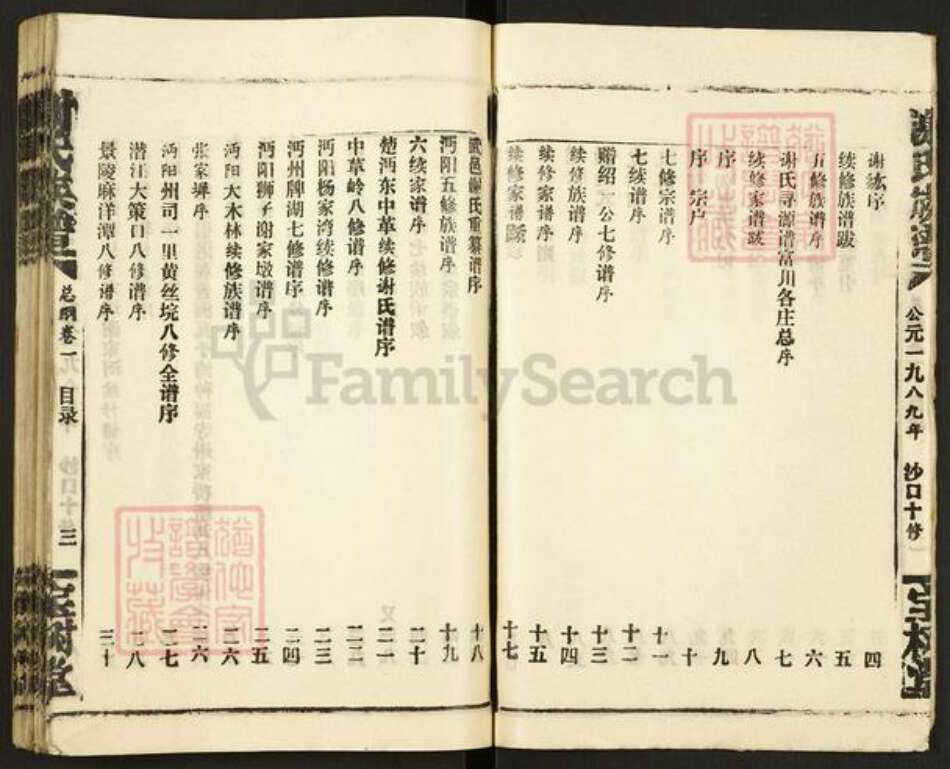 公元一九八九年 沙口十修
谢纮序 四
续修族谱跋 五
五修族谱序 六
谢氏寻源谱富川各庄总序 七
续修家谱跋 八
序 九
序 宗户 十
七修宗谱序 十一
七续谱序 十二
赠绍一公七修谱序 十三
续修族谱序 十四
续修家谱序 十五
续修家谱 十七
邑谢氏重纂谱序 十八
沔阳五修族谱序 十九
六续家谱序 二十
楚沔东中革续修谢氏谱序 二一
中草岭八修谱序 二二
沔阳杨家湾续修谱序 二三
沔州牌湖七修谱序 二四
沔阳狮子谢家墩谱序 二五
沔阳大木林续修族谱序 二六
张家序 二六
沔阳州司一里黄丝垸八修全谱序 二七
潜江大策口八修谱序 二八
景陵麻洋潭八修谱序 三十
总纲卷一 目录 三
FamilySearch